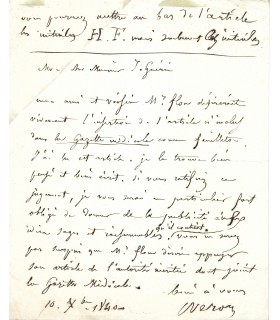 vous pourrez mettre au bas de l'article
les initiales H. F. mais seulement les initiales
Mon cher Monsieur J. Guérin
mon ami et voisin Mr flon désirerait
vivement l'insertion de l'article
dans la Gazette médicale comme feuilleton.
J'ai lu cet article. je le trouve bien
pensé et bien écrit. si vous ratifiez ce
jugement, je vous serai en particulier fort
obligé de donner de la publicité aux
idées sages et raisonnables qu'il contient. vous ne serez
pas surpris que Mr flon désire appuyer
son article de l'autorité méritée dont jouit
la Gazette Médicale.
tout à vous
10. Xbre 1840. Veron